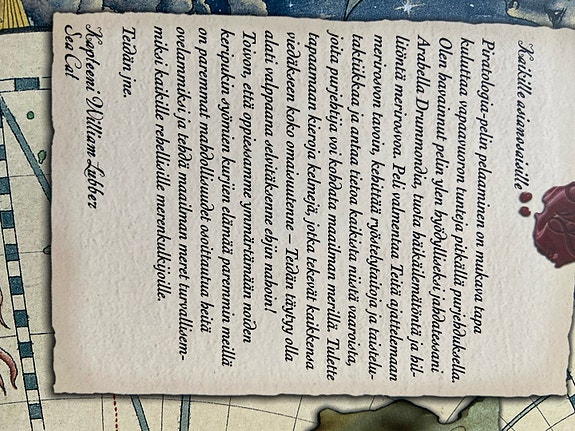 Kaikille asianosaisille
Piratologia-pelin pelaaminen on mukava tapa
kuluttaa vapaavuoron tunteja pitkällä purjehduksella.
Olen havainnut pelin ylen hyödylliseksi jahdatessani
Arabella Drummondia, tuota häikäilemätöntä ja hil-
litöntä merirosvoa. Peli valmentaa Teitä ajattelemaan
merirosvon tavoin, kehittää ryöstelytaitoja ja taistelu-
taktiikkaa ja antaa tietoa kaikista niistä vaaroista,
joita purjehtija voi kohdata maailman merillä. Tulette
tapaamaan kieroja kelmejä, jotka tekevät kaikkensa
viedäkseen koko omaisuutenne – Teidän täytyy olla
alati valppaana selvitäksenne ehjin nahoin!
Toivon, että oppiessamme ymmärtämään noiden
korpukin syömien kurjien elämää paremmin meillä
on paremmat mahdollisuudet osoittautua heitä
ovelammiksi ja tehdä maailman meret turvallisem-
miksi kaikille rehellisille merenkulkijoille.
Teidän jne.
Kapteeni William Lubber
Sea Cat